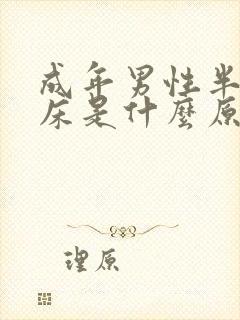 成年男性半
床是什麼原
理原